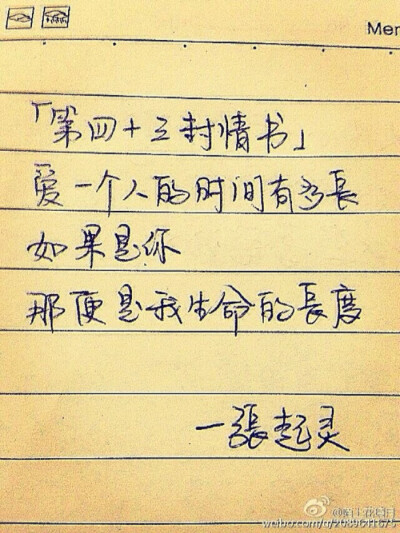 Mer
「第四十三封情书」
爱一个人的时间有多長
如果是你
那便是我生命的長度
一張起灵